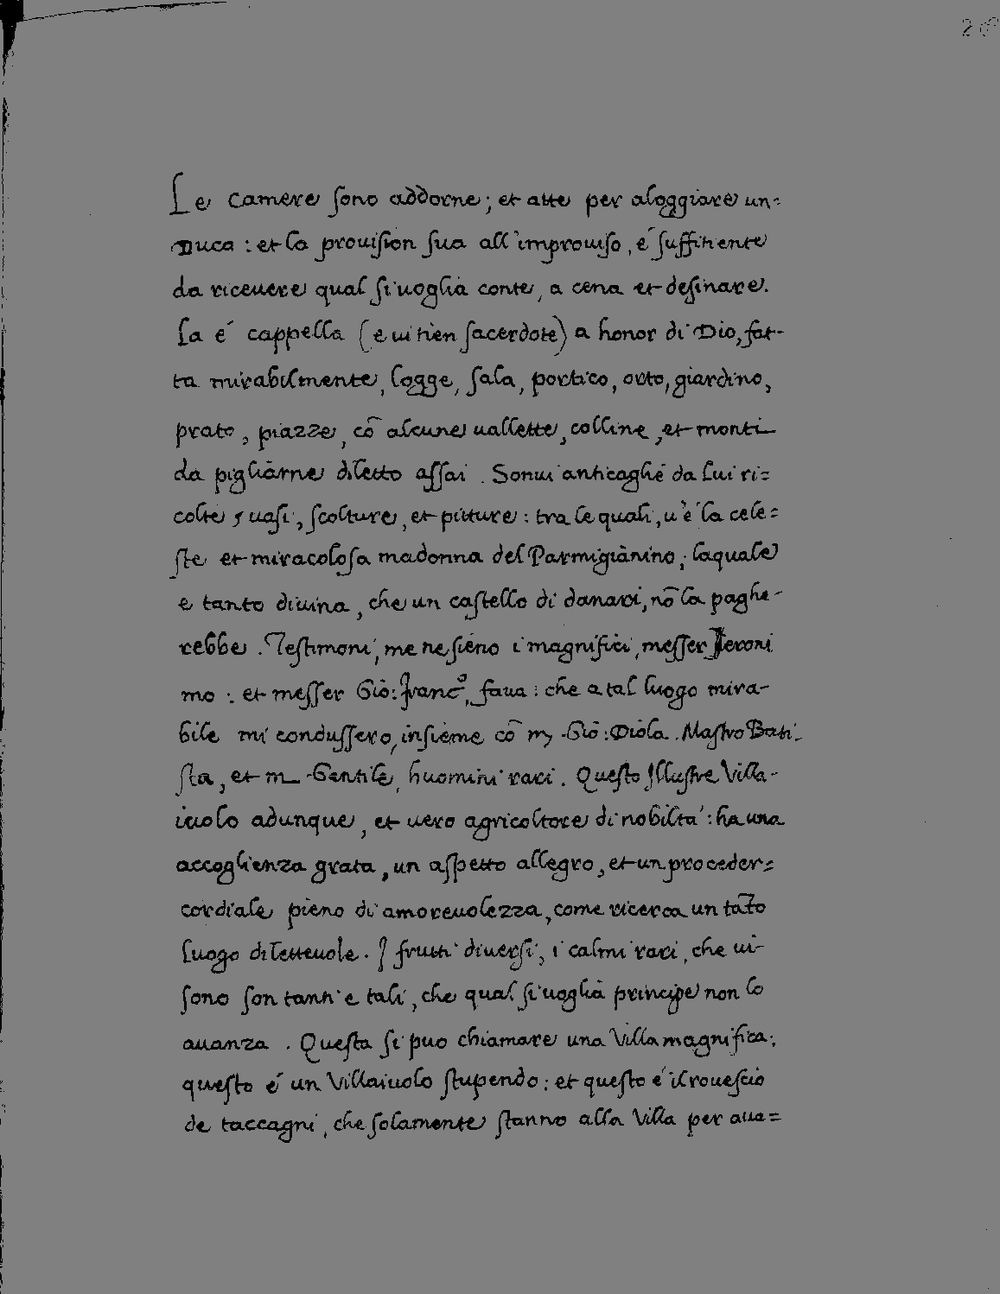 Le camere sono addorne; et atte per aloggiare un=
Duca: et la prouision sua all'improuiso, é suffitiente
da riceuere qual si uoglia conte, a cena et desinare.
La é cappella (e ui tien sacerdote) a honor di Dio, fat-
ta mirabilmente, logge, sala, portico, orto, giardino,
prato, piazze, cō alcune uallette, colline, et monti
da pigliarne diletto assai. Sonui anticaglie da lui ri=
colte, uasi, scolture, et pitture: tra le quali, u'è la cele=
ste et miracolosa madonna del Parmigianino; laquale
e tanto diuina, che un castello di danari, nō la paghe-
rebbe. Testimoni, me ne sieno i magnifici, messer Jeroni
mo: et messer Giō: Franc.º faua: che a tal luogo mira-
bile mi condussero, insieme cō m. Giō: Diola. Mastro Bati-
sta, et m. Gentile, huomini rari. Questo Illustre Villa-
iuolo adunque, et uero agricoltore di nobilta: ha una
accoglienza grata, un aspetto allegro, et un proceder=
cordiale pieno di amoreuolezza, come ricerca un tāto
luogo diletteuole. I frutti diuersi, i calmi rari, che ui
sono son tanti e tali, che qual si uoglia principe non lo
auanza. Questa si puo chiamare una Villa magnifica;
questo é un Villaiuolo stupendo: et questo é il rouescio
de taccagni, che solamente stanno alla Villa per aua=